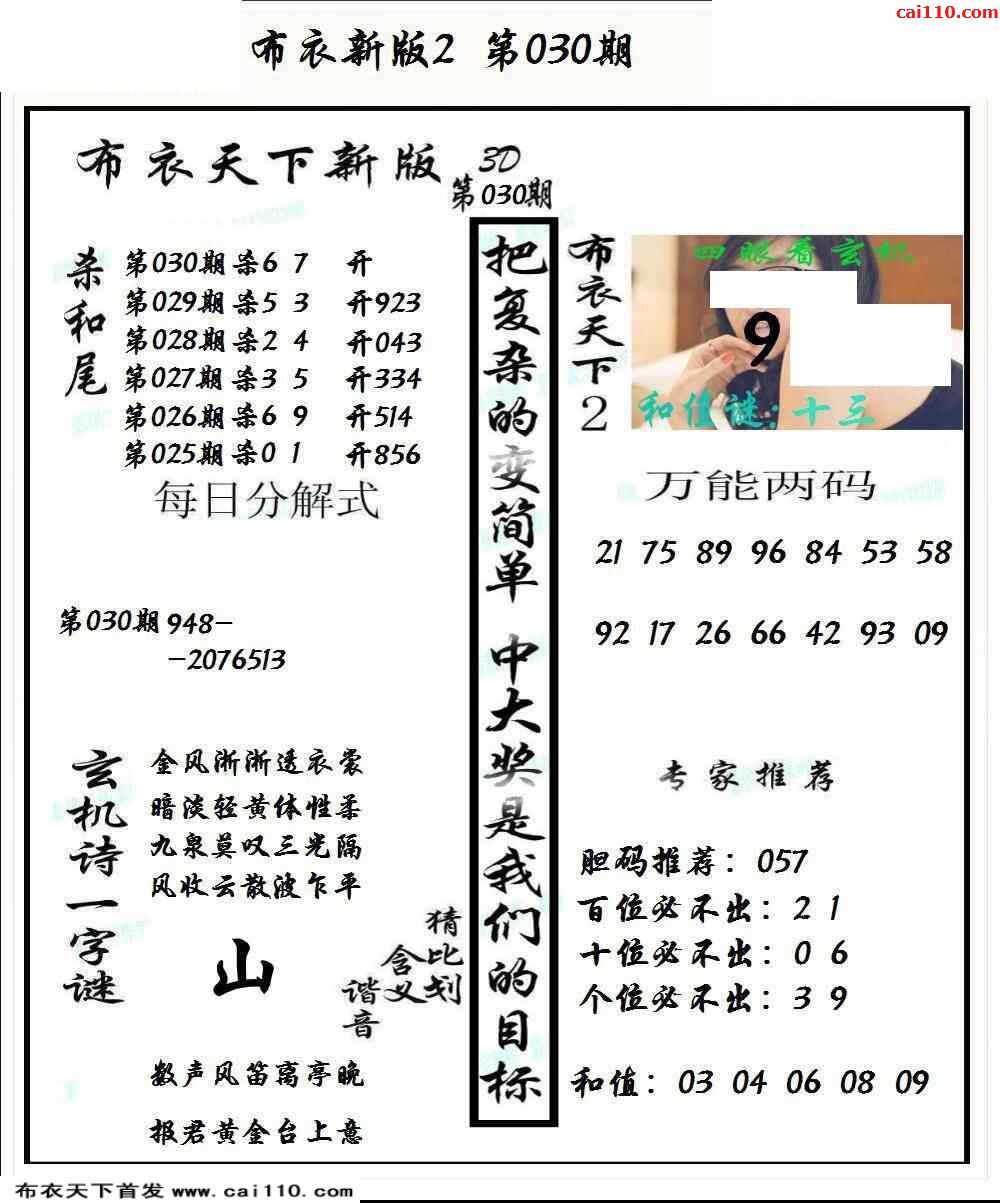 cai110.com
布衣新版2 第030期
布衣天下新版
3D
第030期
杀和尾
第030期杀6 7 开
第029期杀5 3 开923
第028期杀2 4 开043
第027期杀3 5 开334
第026期杀6 9 开514
第025期杀0 1 开856
每日分解式
第030期948-
-2076513
玄机诗一字谜
金风淅淅透衣裳
暗淡轻黄体性柔
九泉莫叹三光隔
风收云散波乍平
山
猜比划
含义
谐音
数声风笛离亭晚
报君黄金台上意
把复杂的变简单 中大奖是我们的目标
布衣天下2
四眼看玄机
9
和值谜:十三
万能两码
21 75 89 96 84 53 58
92 17 26 66 42 93 09
专家推荐
胆码推荐：057
百位必不出：2 1
十位必不出：0 6
个位必不出：3 9
和值：03 04 06 08 09
布衣天下首发 www.cai110.com